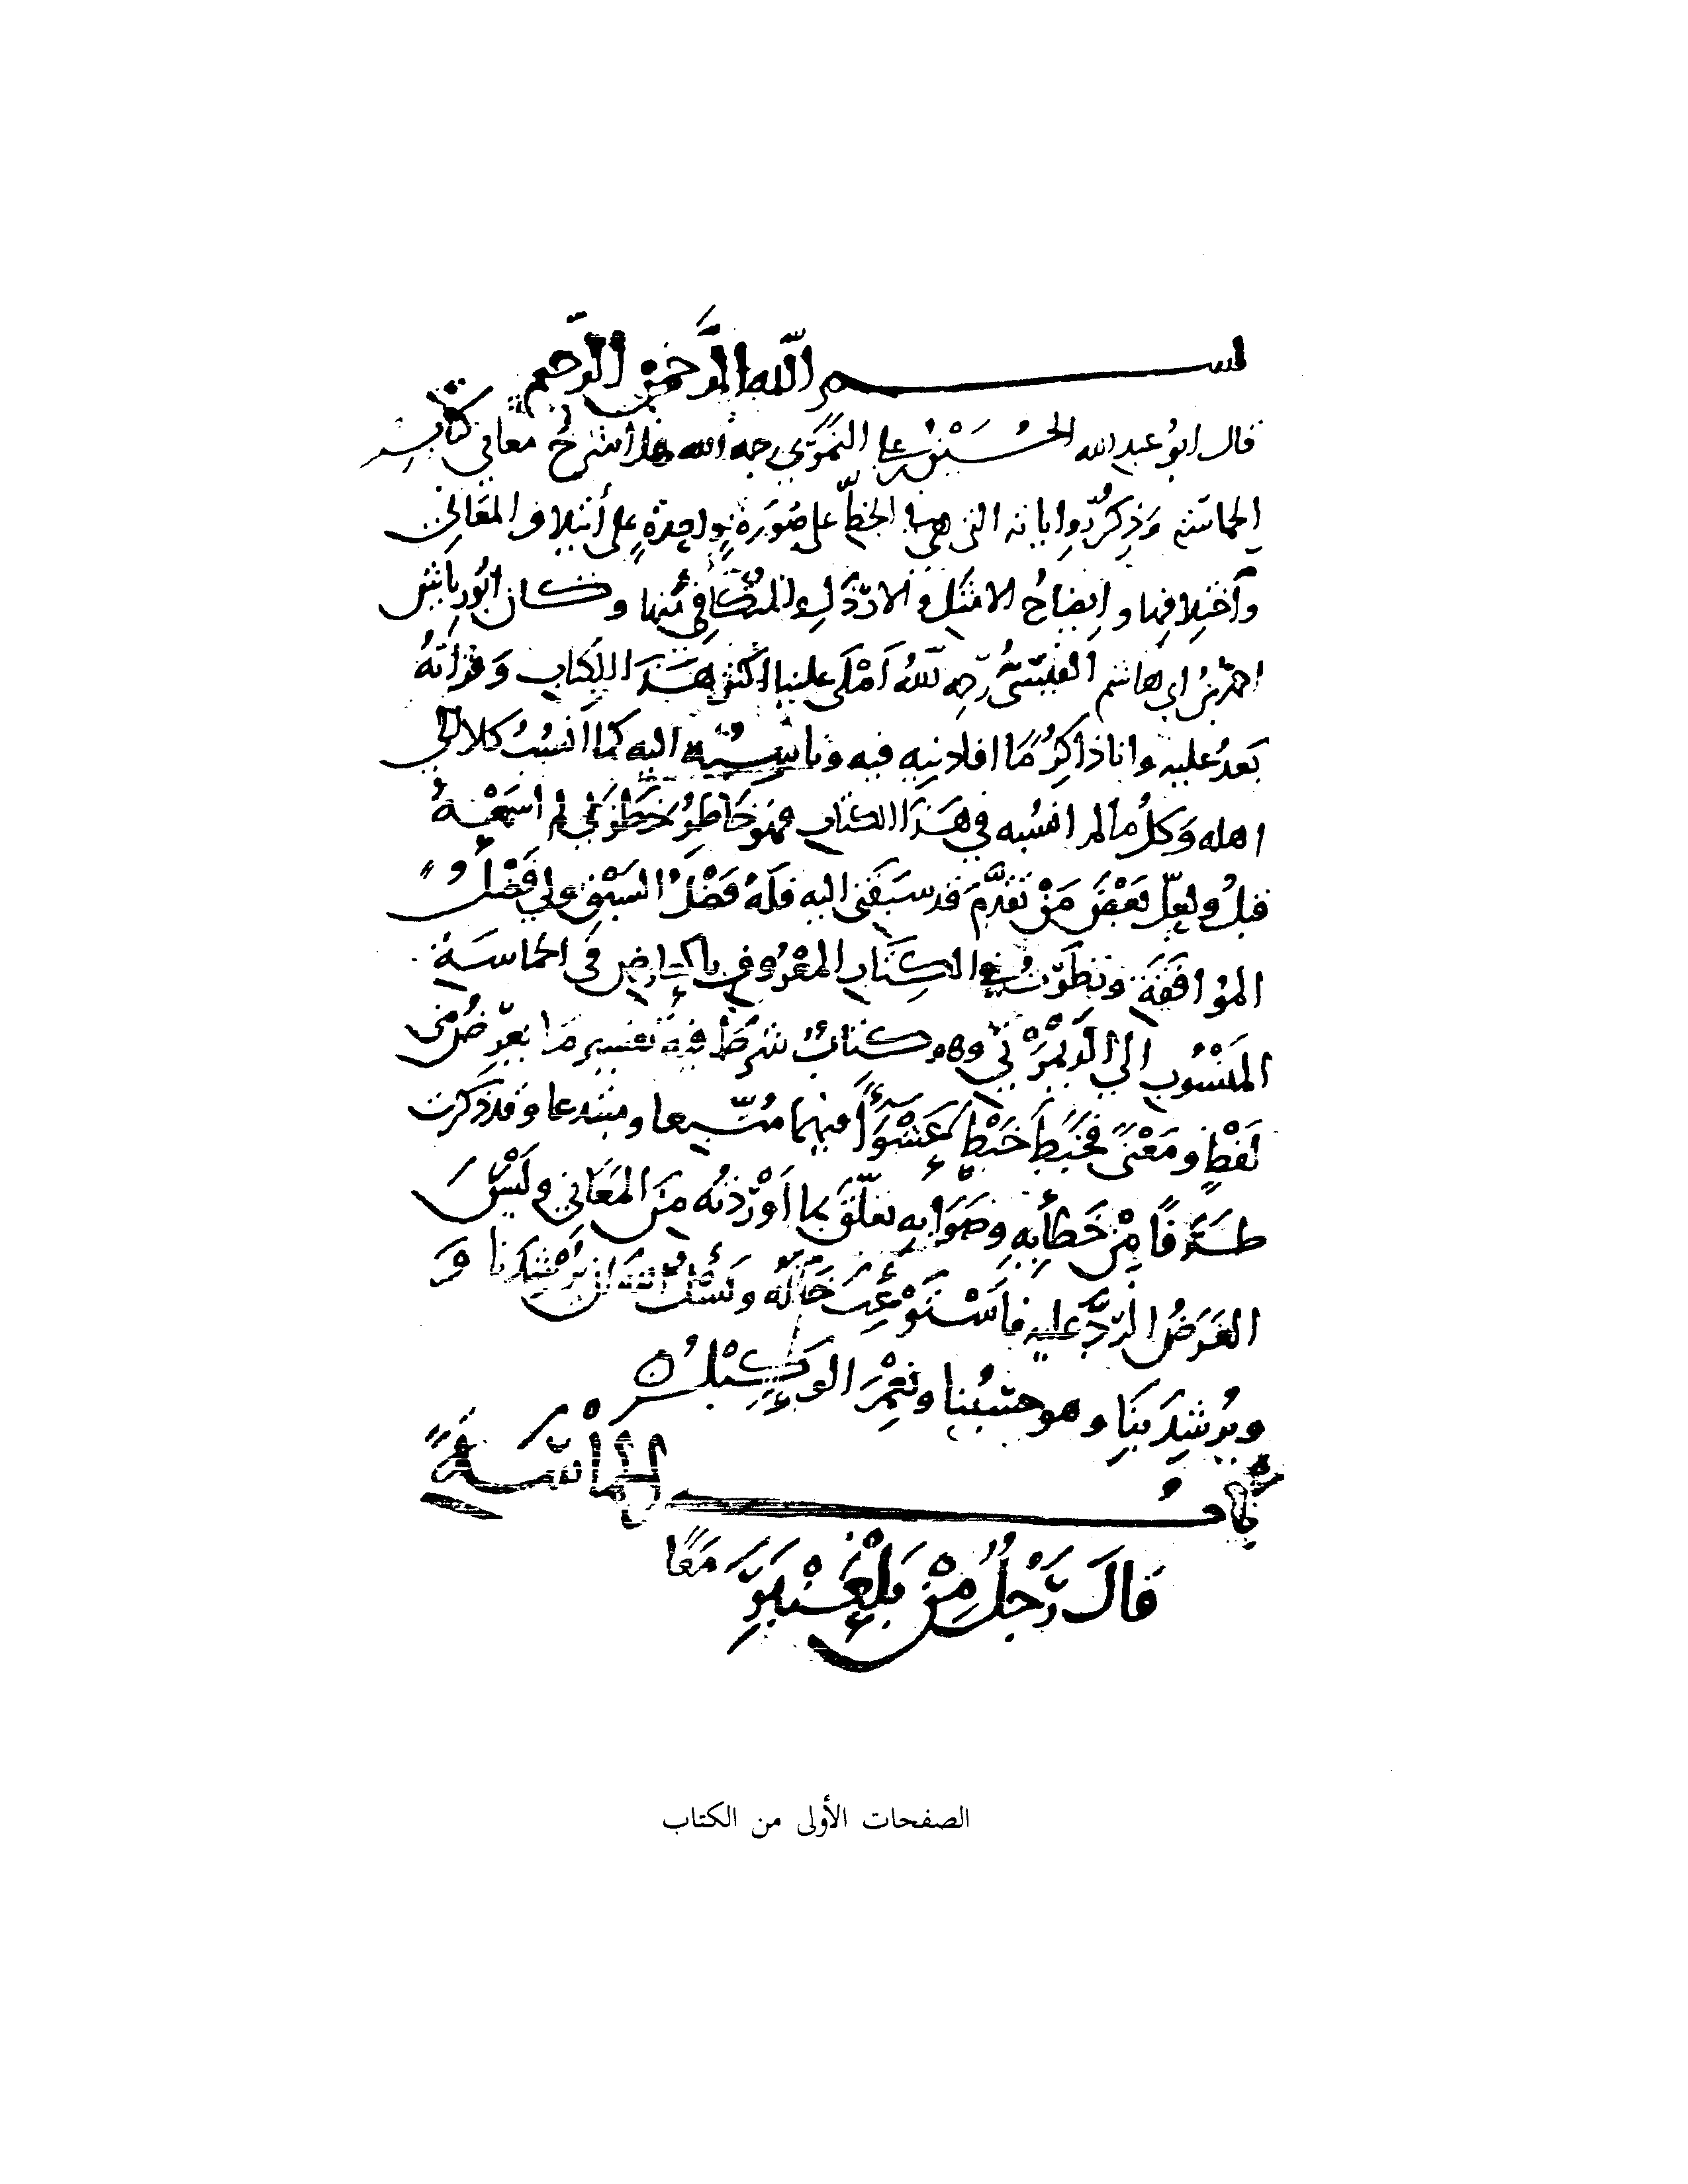 بسم الله الرحمن الرحيم
قال ابو عبد الله الحُسَيْنُ بن علي النمَري رحمه الله هذا شرحُ معاني كتاب
الحماسة وذِكرُ رواياته التي هي في الخطّ على صُورَةٍ واحدةٍ على أئتلاف المعاني
وآختلافها وايضاحُ الامثَل والارذَل والمتكافي منها وكان ابُو رياش
احمد بن ابي هاشم القيسيُّ رحمه اللهُ أمْلَى علينا اكثر هَذا الكتاب وقرأتهُ
بَعدُ عليه وانا ذاكِرُ مَا افادنِيه فيه وناسبُه اليه كما انسُبُ كلا الي
اهله وكلُّ ما لم انسُبه في هَذا الكتاب فهو خاطِرُ خطَر لي لم اسمَعْهُ
قبلُ ولعلّ بَعْضَ مَنْ تقدَّمَ قد سبَقَني اليه فلَهُ فَضْلُ السَبْقِ ولي فَضْلُ
الموُافَقَة ونظَرْتُ في الكِتاب المعْرُوف بالعارض في الحماسَة
المَنْسُوب الي الدِيمَرْتي وهو كتابٌ شرطَ فيه تفسير مَا يعرِضُ من
لَفْظٍ ومَعْنًى فخبَطَ خَبْطَ عَشْوَآءَ فيهما مُتّبِعا ومبتدعا وقد ذكرت
طَرَفًا مِنْ خَطأِبِهِ وصَوَابِه تعلّقَ بما اوْردْتُه مِنَ المَعَاني ولَيْسَ
الغَرَضُ الردَّ عليه فاَسْتَوْعِبَ خَالَهُ ونَسْئلُ اللهَ ان يُرْشِدَنا وَ
ويُرشِدَ بِنَا وهو حسْبُنا ونِعْمَ الوَكِيْلُ
بابُ الحماسَةِ
قالَ رَجُلٌ مِنْ بَلْعَنْبَرَِ مَعًا
الصفحات الأولى من الكتاب